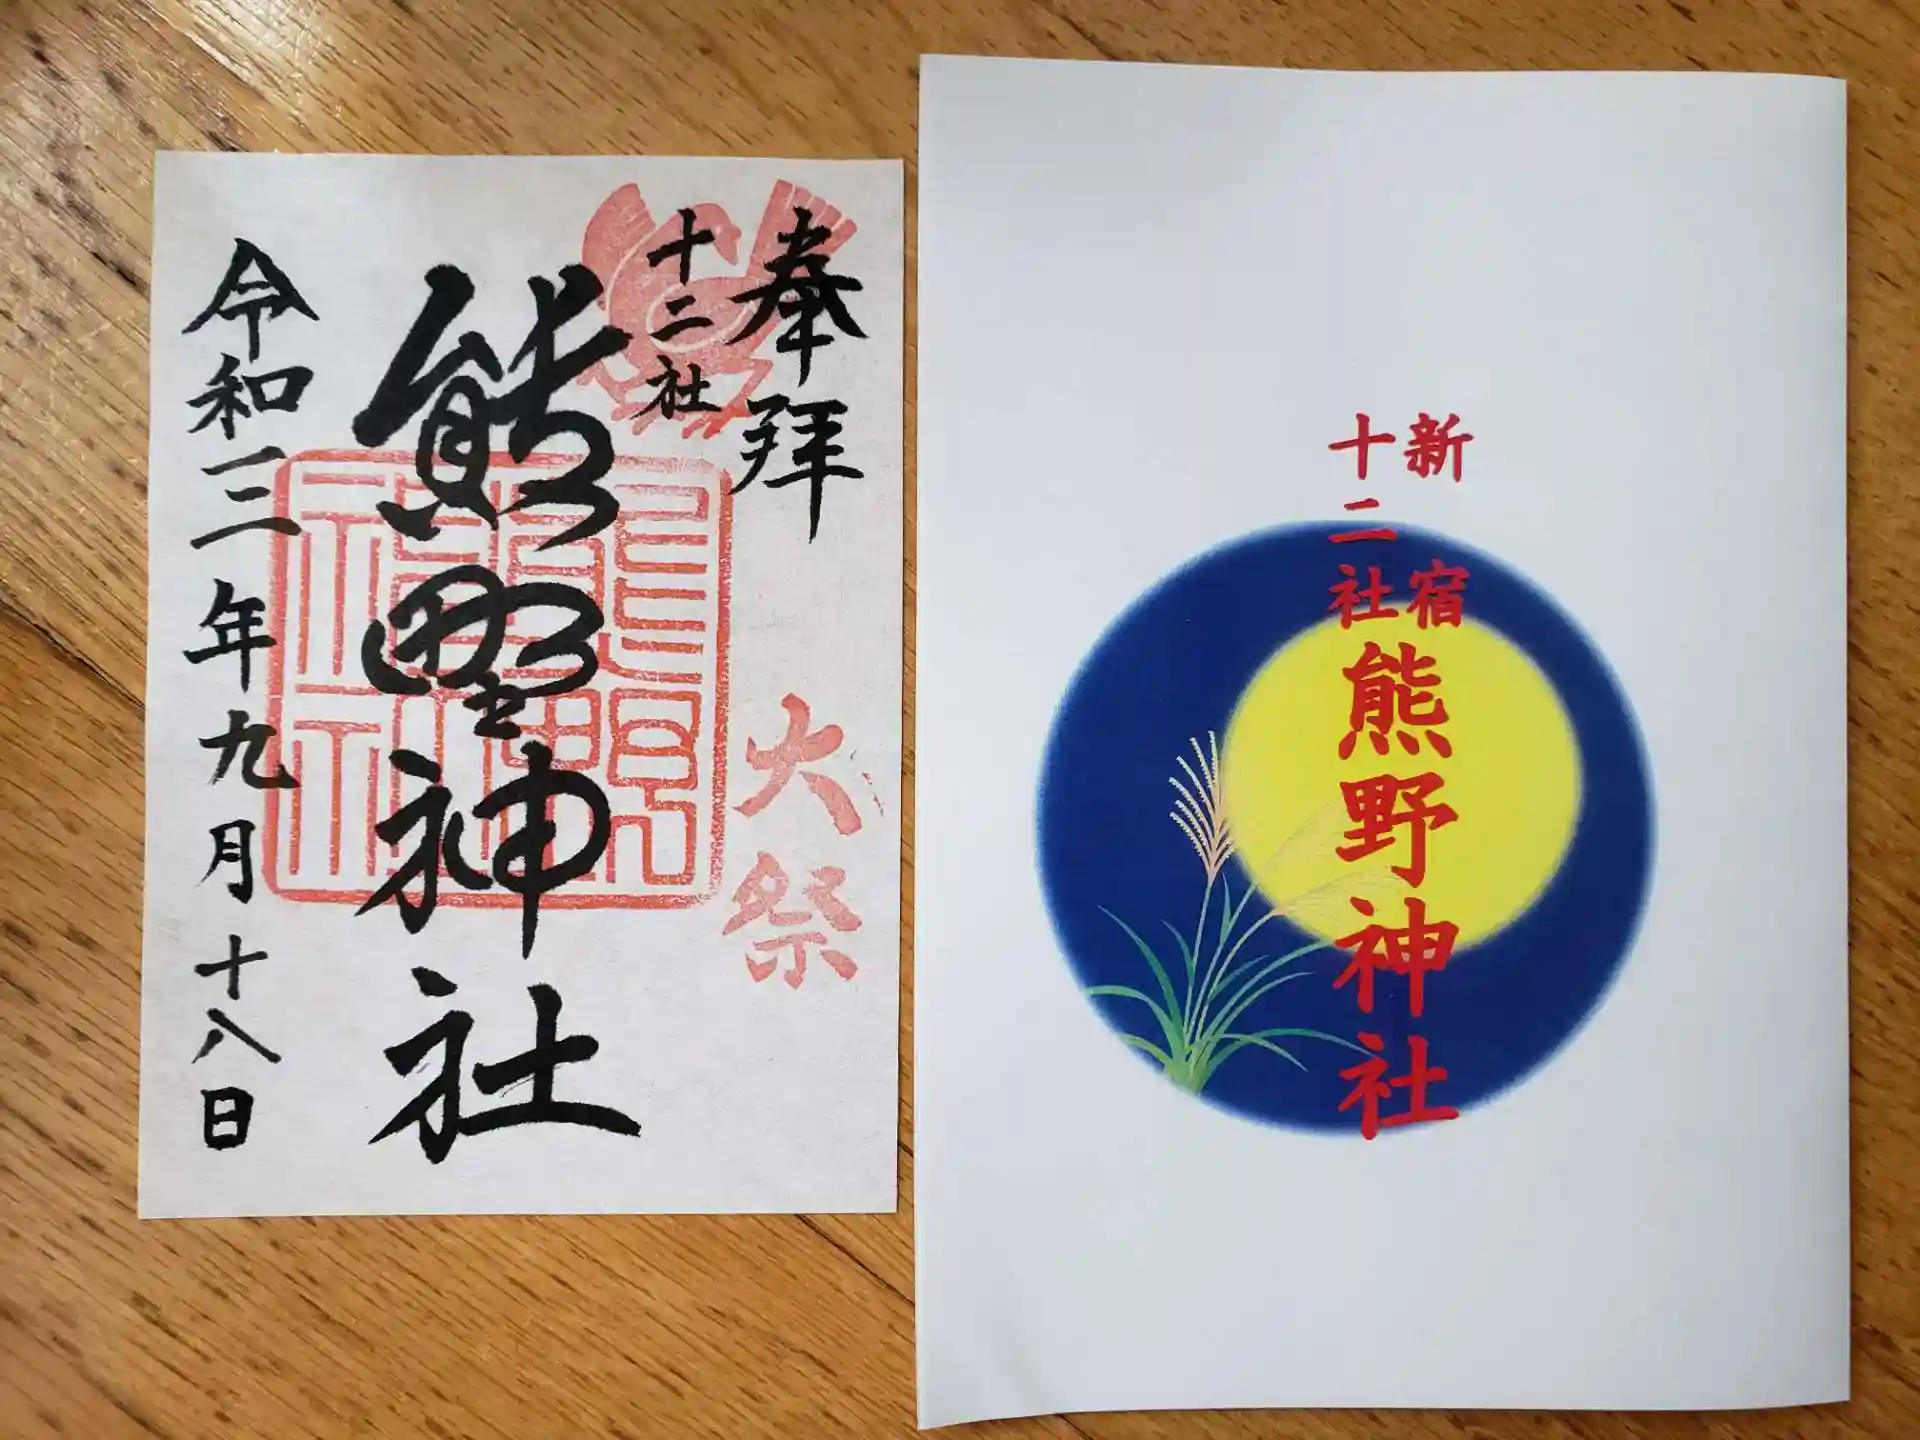 奉拝
十二社
熊野神社
大祭
令和三年九月十八日
熊野神社
新宿
十二社
熊野神社